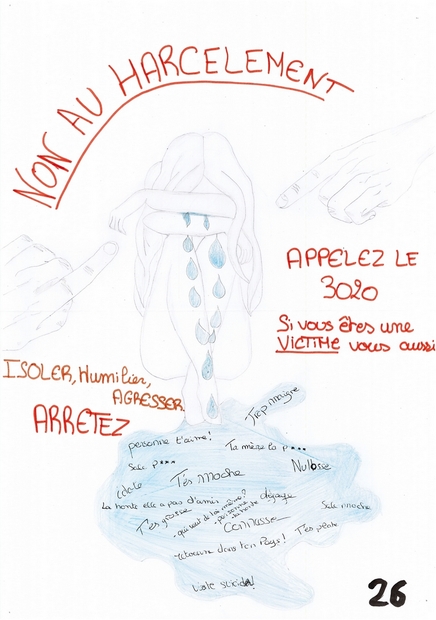 NON AU HARCELEMENT
APPELEZ LE
3020
Si vous êtes une
VICTIME vous aussi
ISOLER, Humilier,
AGRESSER
ARRETEZ
Trop maigre
personne t'aime!
Ta mère la p***
Sale p***
T'es moche
Nulosse
La honte elle a pas d'amis
dégage
Sale moche
T'es grosse
- personne
- la honte
Connasse
T'es plate
- retourne dans ton Pays!
suicide!
26